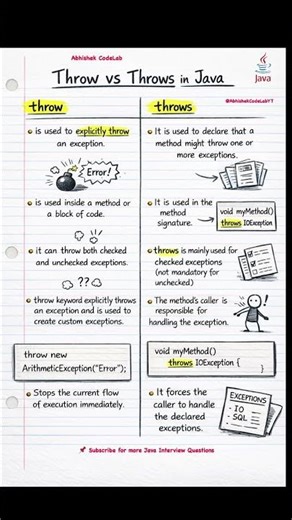 Abhishek CodeLab
Throw vs Throws in Java
Java
@AbhishekCodeLabYT
throw
is used to explicitly throw
an exception.
Error!
is used inside a method or
a block of code.
it can throw both checked
and unchecked exceptions.
??
throw keyword explicitly throws
an exception and is used to
create custom exceptions.
throw new
ArithmeticException("Error");
Stops the current flow
of execution immediately.
throws
It is used to declare that a
method might throw one or
more exceptions.
It is used in the
method
signature.
void myMethod()
throws IOException
throws is mainly used for
checked exceptions
(not mandatory for
unchecked)
The method's caller is
responsible for
handling the exception.
void myMethod()
throws IOException {
}
It forces the
caller to handle
the declared
exceptions.
EXCEPTIONS
- IO
- SQL
Subscribe for more Java Interview Questions